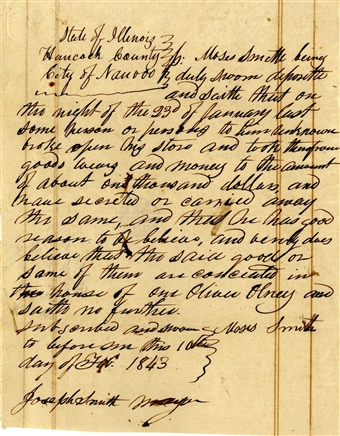 State of Illinois
Hancock County ss. Moses Smith being
City of Nauvoo duly sworn deposeth
and saith that on
the night of the 23d of January last
some person or persons to him unknown
broke open his store and took therefrom
goods wares and money to the amount
of about one thousand dollars and
have secreted or carried away
the same, and that he has good
reason to believe, and verily does
believe, that the said goods or
some of them are concealed in
the house of one Oliver Olney and
saith no further.
Subscribed and sworn Moses Smith
to before me this 10th
day of Feb. 1843
Joseph Smith mayor